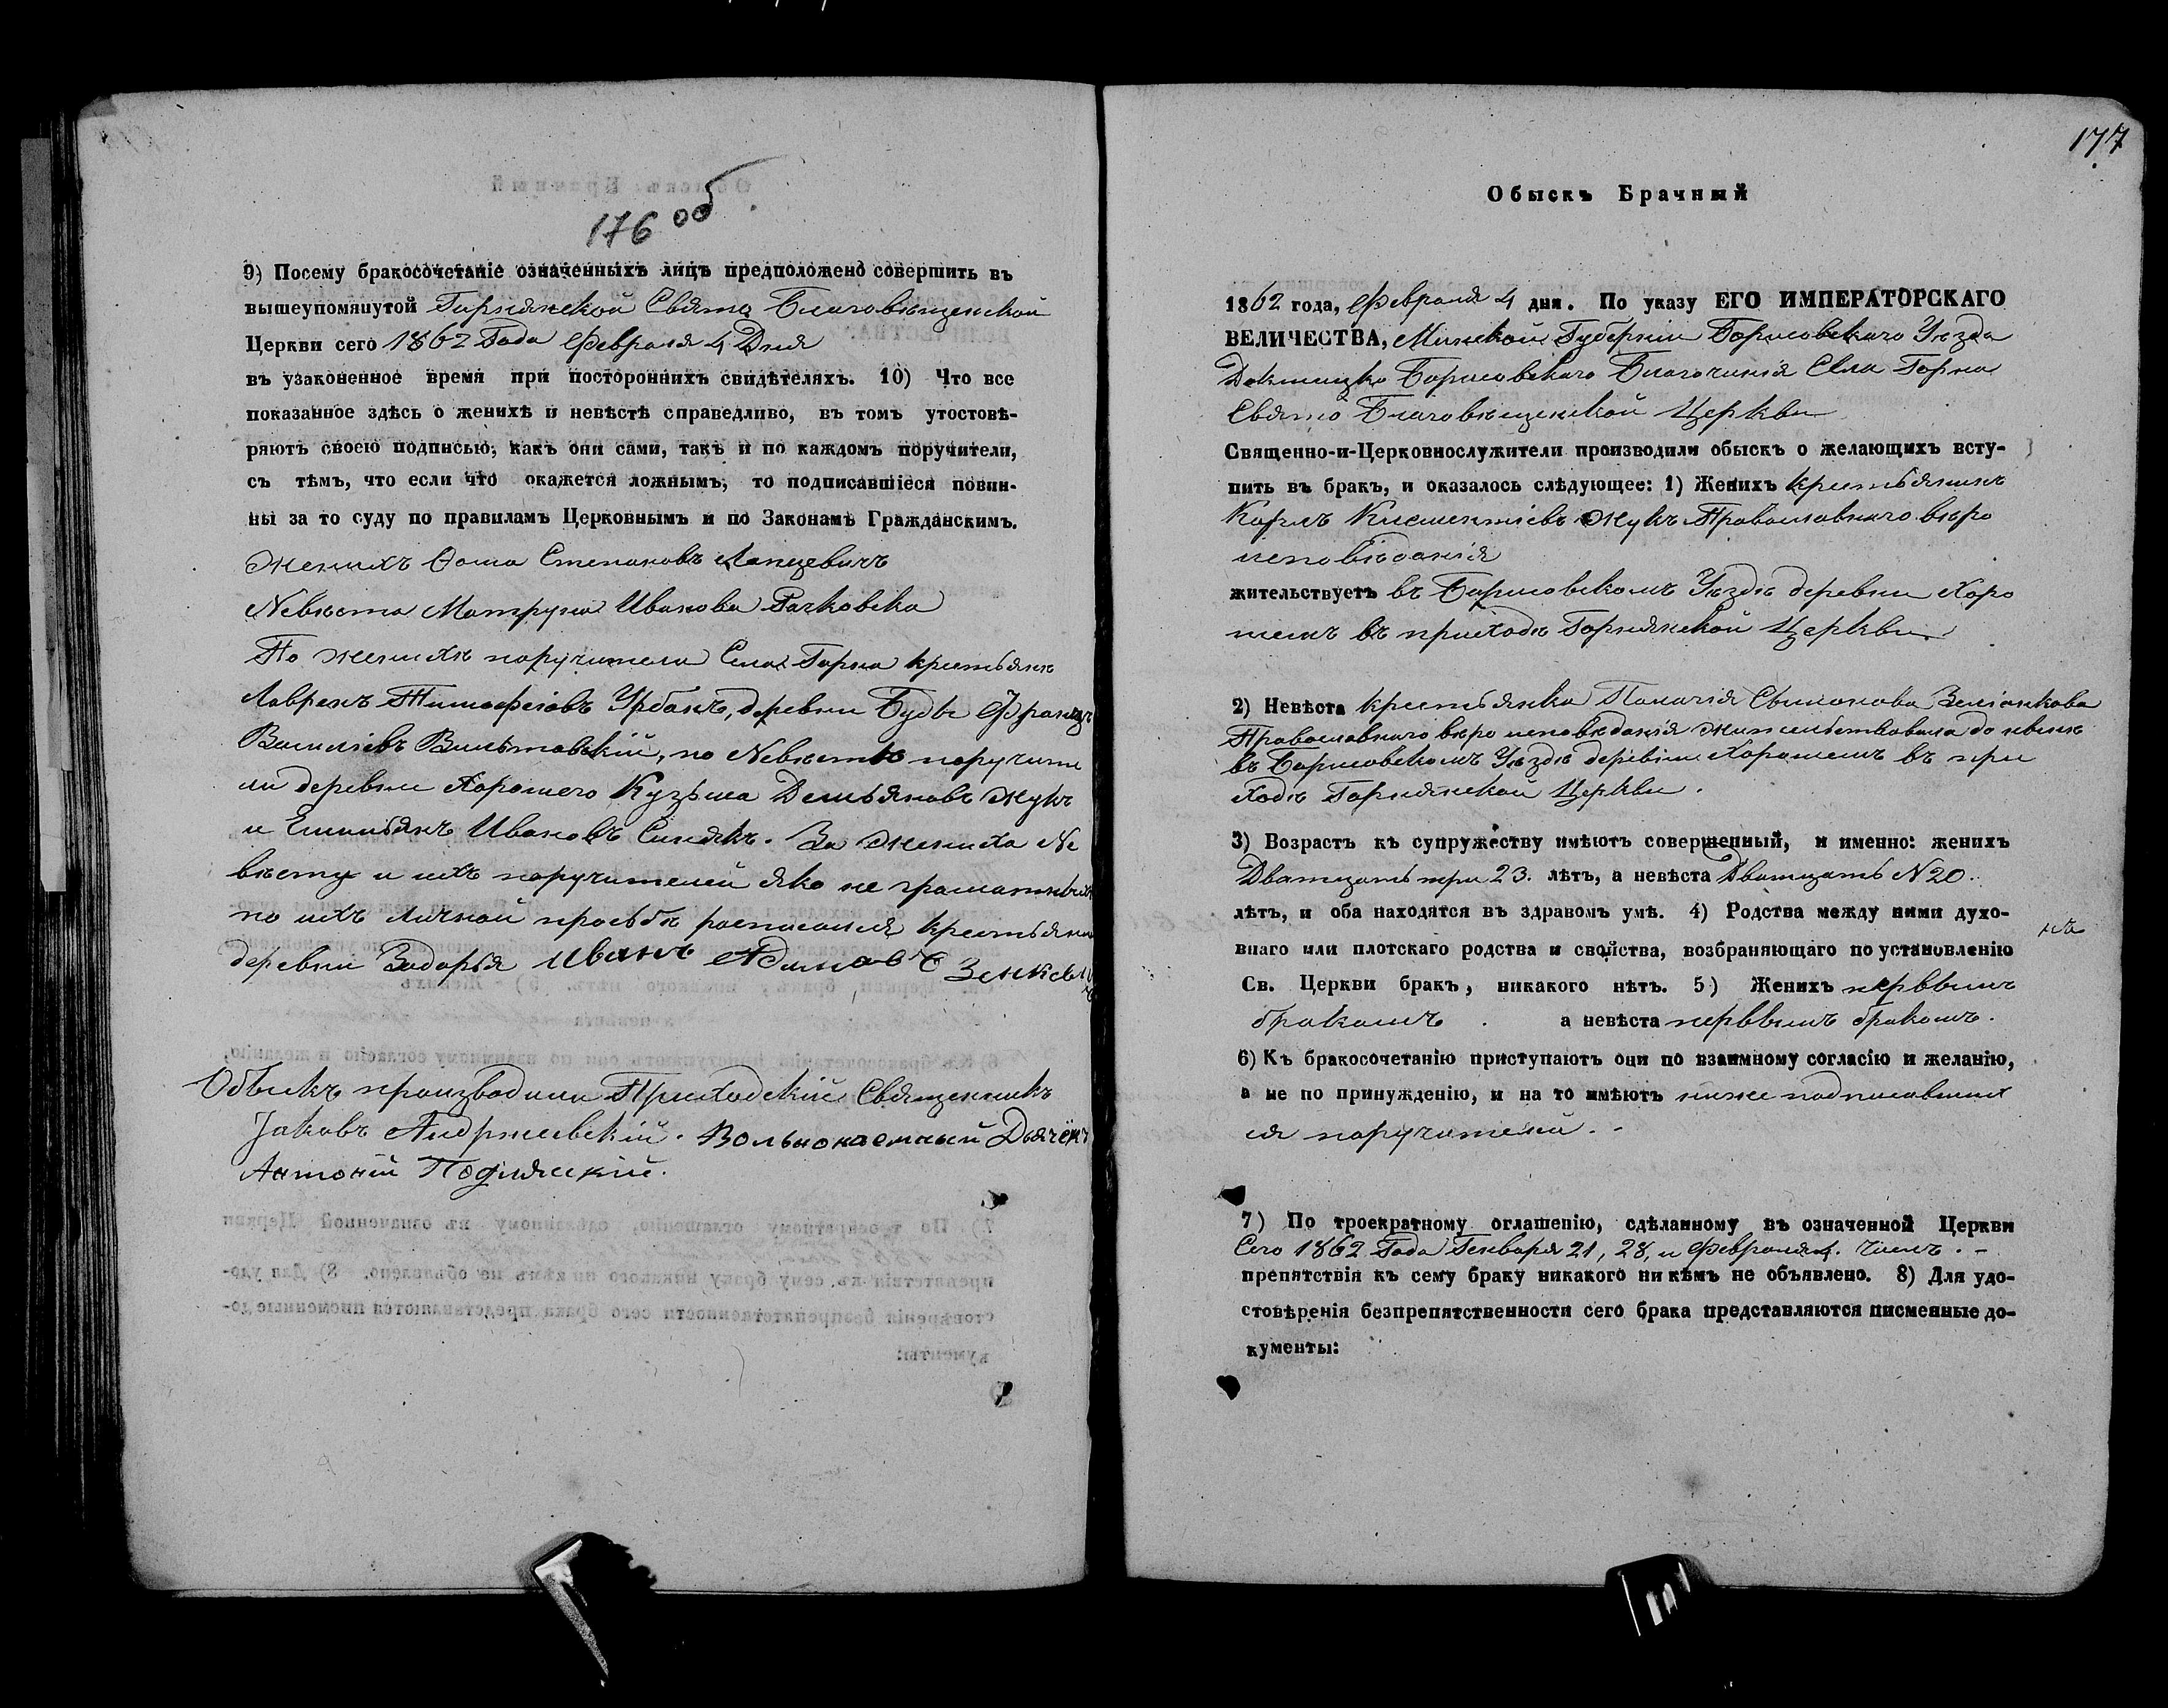 176 об
9) Посему бракосочетаніе означенныхъ лицъ предположено совершить въ
вышеупомянутой Горнянской Свято Благовѣщенской
Церкви сего 1862 Года Февраля 4 Дня
въ узаконенное время при постороннихъ свидѣтеляхъ. 10) Что все
показанное здѣсь о женихѣ и невѣстѣ справедливо, въ томъ утостовѣ-
ряютъ своею подписью, какъ они сами, такъ и по каждомъ поручители,
съ тѣмъ, что если что окажется ложнымъ, то подписавшіеся повин-
ны за то суду по правиламъ Церковнымъ и по Законамъ Гражданскимъ.
Женихъ Ѳома Степановъ Лапцевичъ
Невѣста Матруна Иванова Рачковска
По женихѣ поручители Села Горна крестьяне
Лавренъ Тимофеіовъ Урбанъ, деревни Будь Францъ
Василіевъ Вильтовскій, по Невѣстѣ поручите
ли деревни Хорошего Кузьма Демьяновъ Жукъ
и Емильянъ Ивановъ Синякъ. За жениха Не
вѣсту и ихъ поручителей яко не грамотныхъ
по ихъ личной просьбѣ росписался крестьянинъ
деревни Задорья Иванъ Адамовъ Зенкевичъ
Обыскъ производили Приходскій Священникъ
Іаковъ Андржеевскій. Вольнонаемный Дьячёкъ
Антоній Подляшскій.
177
Обыскъ Брачный
1862 года, Февраля 4 дня. По указу ЕГО ИМПЕРАТОРСКАГО
ВЕЛИЧЕСТВА, Минской Губерніи Борисовскаго Уѣзда
Докшицко Борисовскаго Благочинія Села Горна
Свято Благовѣщенской Церкви
Священно-и-Церковнослужители производили обыскъ о желающихъ всту-
пить въ бракъ, и оказалось слѣдующее: 1) Женихъ крестьянинъ
Карлъ Клементіевъ Жукъ Православнаго вѣро
исповѣданія
жительствуетъ въ Борисовскомъ Уѣздѣ деревни Хоро
шемъ въ приходѣ Горнянской Церкви
2) Невѣста крестьянка Палагія Свимонова Земіонкова
Православнаго вѣро исповѣданія жительствовала до нынѣ
въ Борисовскомъ Уѣздѣ деревни Хорошемъ въ при
ходѣ Горнянской Церкви.
3) Возрастъ къ супружеству имѣютъ совершенный, и именно: женихъ
Дватцать три 23. лѣтъ, а невѣста Дватцать N 20.
лѣтъ, и оба находятся въ здравомъ умѣ. 4) Родства между ними духо-
внаго или плотскаго родства и свойства, возбраняющаго по установленію
Св. Церкви бракъ, никакого нѣтъ. 5) Женихъ первымъ
бракомъ. а невѣста первымъ бракомъ.
6) Къ бракосочетанію приступаютъ они по взаимному согласію и желанію,
а не по принужденію, и на то имѣютъ ниже подписавших
ся поручителей.
7) По троекратному оглашенію, сдѣланному въ означенной Церкви
Сего 1862 Года Генваря 21, 28, и Февраля 4. Числъ. -
препятствія къ сему браку никакого ни кѣмъ не объявлено. 8) Для удо-
стовѣренія безпрепятственности сего брака представляются писменные до-
кументы: